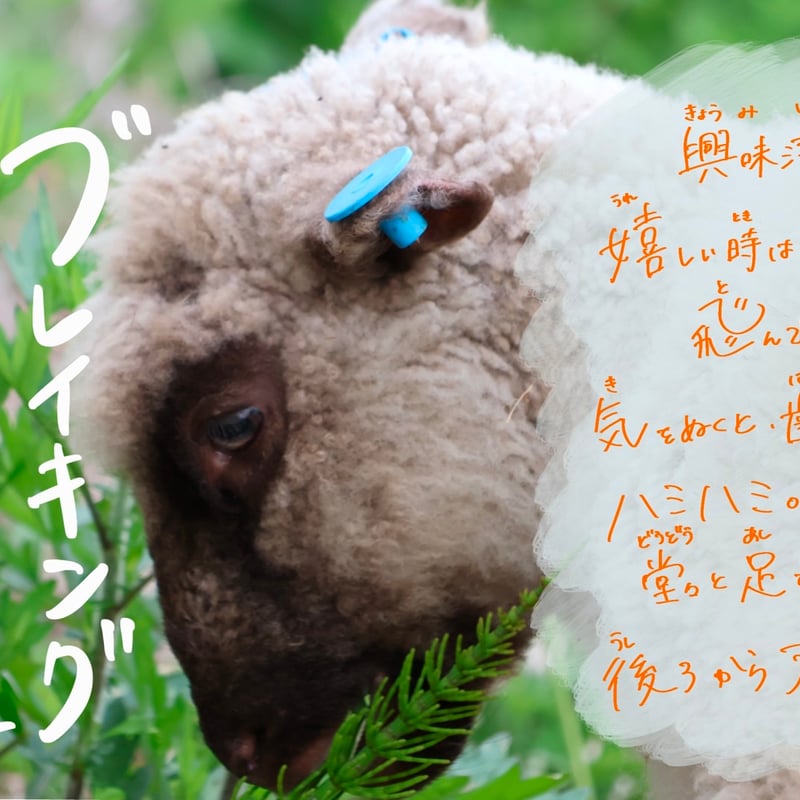 ブレイキング
きょう み
興味
うれ とき
嬉しい時は
と
飛ん
き
気をぬくと、
ハミハミ
どうどう あし
堂々と足
うし
後ろから